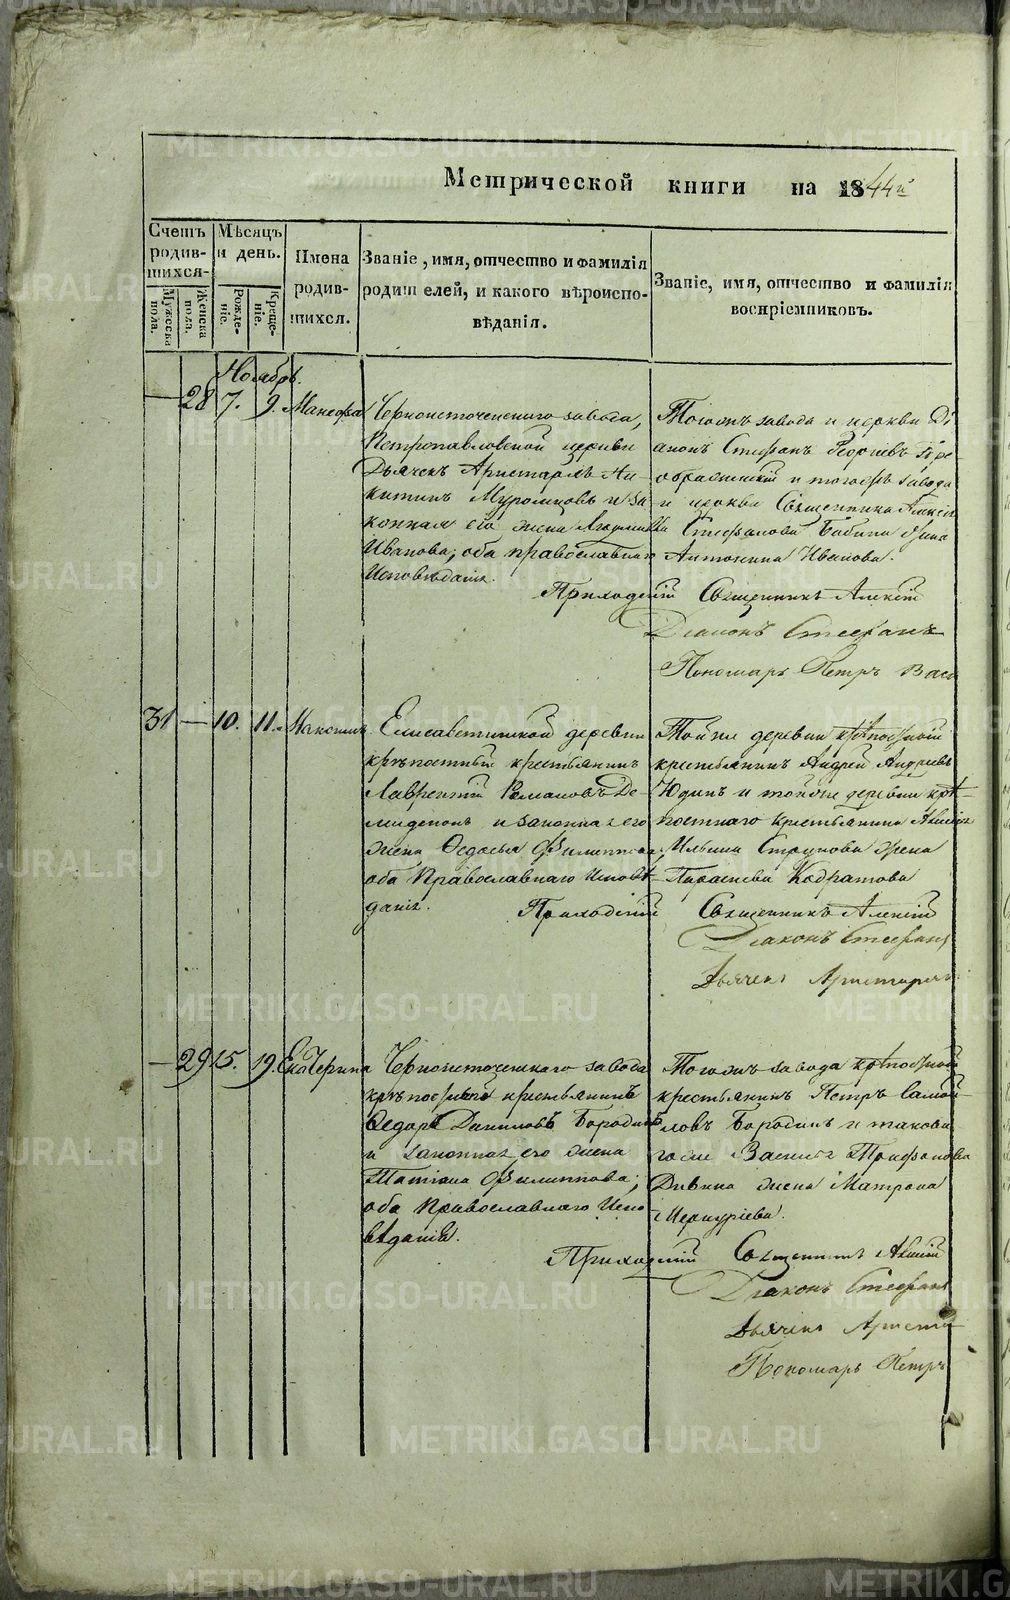 Метрической книги на 1844й
Счетъ родившихся.
Мужеска пола.
Женска пола.
Мѣсяцъ и день.
Рожденіе.
Крещеніе.
Имена родившихся.
Званіе, имя, отчество и фамилія родителей, и какого вѣроисповѣданія.
Званіе, имя, отчество и фамилія воспріемниковъ.
Ноябрь.
— 28 7. 9.
Черноисточенскаго завода,
Петропавловской церкви
Дьячекъ Аристархъ Ни-
китинъ и за
конная его жена
Иванова, оба православнаго
Исповѣданія.
Тогожъ завода и церкви Ді
аконъ Стефанъ Георгіевъ Пре
ображенскій и тогожъ завода
и церкви Священника Алексія
Стефанова Бабина жена
Антонина Иванова.
Приходскій Священникъ Алексій
Діаконъ Стефанъ
Пономарь Петръ Васи
31 — 10. 11.
Елисаветинской деревни
крѣпостный крестьянинъ
Лаврентій Романовъ Де
и законная его
жена Ѳедосья Филиппова,
оба Православнаго Исповѣ-
данія.
Тойже деревни крѣпостный
крестьянинъ Андрей Андреевъ
Юдинъ и тойже деревни крѣ-
постнаго крестьянина
Ильина жена
Параскева Кодратова
Приходскій Священникъ Алексій
Діаконъ Стефанъ
Дьячекъ Аристархъ
— 29 15. 19. Екатерина
Черноисточенскаго завода
крѣпостный крестьянинъ
Ѳедоръ Даниловъ Бородинъ
и законная его жена
Татіана Филиппова,
оба Православнаго Испо
вѣданія.
Тогожъ завода крѣпостный
крестьянинъ Петръ Самой-
ловъ Бородинъ и таковаго
же Трифонова
жена Матрона
Меркуріева.
Приходскій Священникъ Алексій
Діаконъ Стефанъ
Дьячекъ Ариста
Пономарь Петръ
METRIKI.GASO-URAL.RU